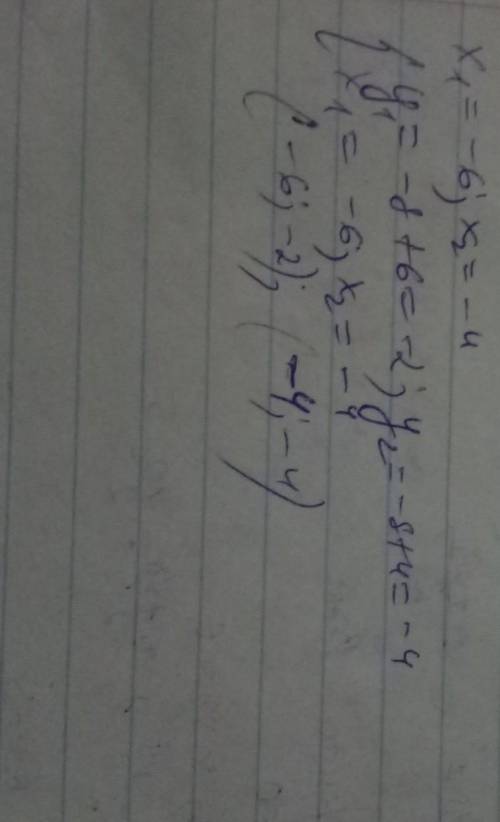 x₁ = -6; x₂ = -4
{ y₁ = -8 + 6 = -2; y₂ = -8 + 4 = -4
x₁ = -6; x₂ = -4
(-6; -2); (-4; -4)